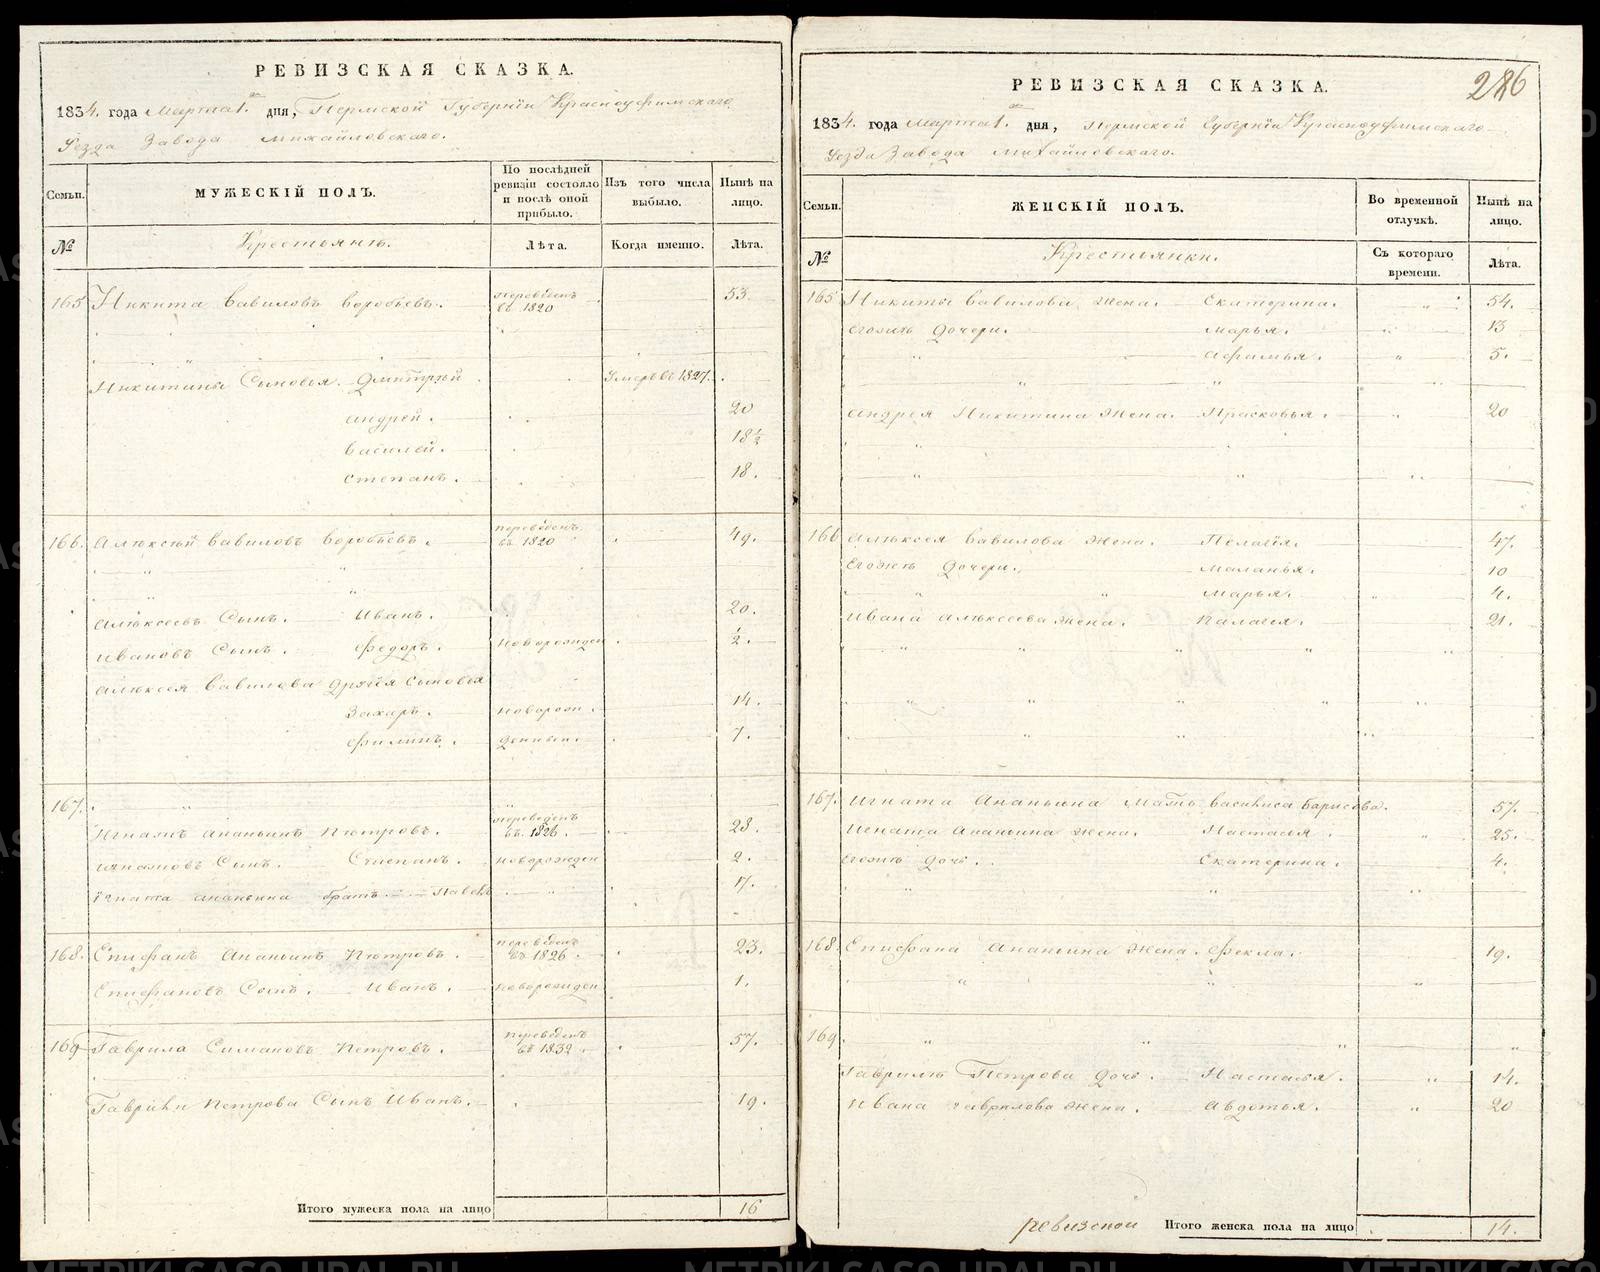 РЕВИЗСКАЯ СКАЗКА.
1834. года Марта 1. дня, Пермской Губерніи Красноуфимскаго
Уезда Завода Михайловскаго.
Семьи.
МУЖЕСКІЙ ПОЛЪ.
По послѣдней ревизіи состояло и послѣ оной прибыло.
Изъ того числа выбыло.
Нынѣ на лицо.
№
Крестьянъ.
Лѣта.
Когда именно.
Лѣта.
165 Никита Вавиловъ Воробьевъ. переведенъ въ 1820 53.
Никитины Сыновья. Дмитрей Умеръ въ 1827.
Андрей. 20
Василей. 18½
Степанъ. 18.
166. Алѣксѣй Вавиловъ Воробьевъ. переведенъ въ 1820 49.
Алѣксеевъ Сынъ. Иванъ. 20.
Ивановъ Сынъ. Федоръ. новорожден ½.
Алѣксея Вавилова Другія Сыновья
Захаръ. новорож. 14.
Филипъ. денныи. 7.
167.
Игнатъ Ананьинъ Пѣтровъ. переведенъ въ 1826. 28.
Игнатовъ Сынъ. Степанъ. новорожден 2.
Игната Ананьина братъ Павелъ 17.
168. Епифанъ Ананьинъ Пѣтровъ. переведенъ въ 1826. 23.
Епифановъ Сынъ. Иванъ. новорожден 1.
169 Гаврила Симановъ Петровъ. переведенъ въ 1832. 57.
Гаврилы Петрова Сынъ Иванъ. 19.
Итого мужеска пола на лицо 16
РЕВИЗСКАЯ СКАЗКА.
286
1834. года Марта 1. дня, Пермской Губерніи Красноуфимскаго
Уезда Завода Михайловскаго.
Семьи.
ЖЕНСКІЙ ПОЛЪ.
Во временной отлучкѣ.
Нынѣ на лицо.
№
Крестьянки.
Съ котораго времени.
Лѣта.
165 Никиты Вавилова жена. Екатерина. 54.
Егожъ Дочери. Марья. 13
Афимья. 5.
Андрея Никитина жена. Прасковья. 20
166 Алѣксея Вавилова жена. Пелагія. 47.
Егожъ Дочери. Маланья. 10
Марья. 4.
Ивана Алѣксеева жена. Палагея. 21.
167. Игната Ананьина Мать Василиса Барисова. 57.
Игната Ананьина жена. Настасья. 25.
Егожъ Дочь. Екатерина. 4.
168. Епифана Ананьина жена. Фекла. 19.
169
Гаврилы Петрова Дочь. Настасья. 14.
Ивана Гаврилова жена. Авдотья. 20
ревизской Итого женска пола на лицо 14.
METRIKI.GASO-URAL.RU
METRIKI.GASO-URAL.RU